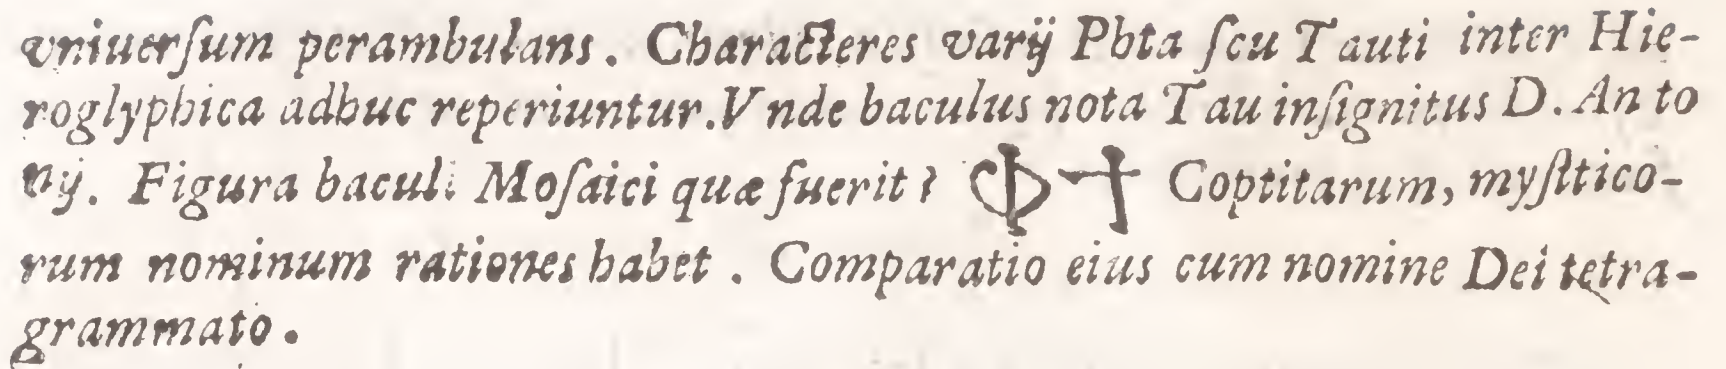 vniuerſum perambulans. Characteres varij Phta ſcu Tauti inter Hie-
roglyphica adhuc reperiuntur. Vnde baculus nota Tau inſignitus D. Anto
nij. Figura baculi Moſaici quæ fuerit? Ⲫϯ Coptitarum, myſttico-
rum nominum rationes habet. Comparatio eius cum nomine Dei tetra-
grammato.